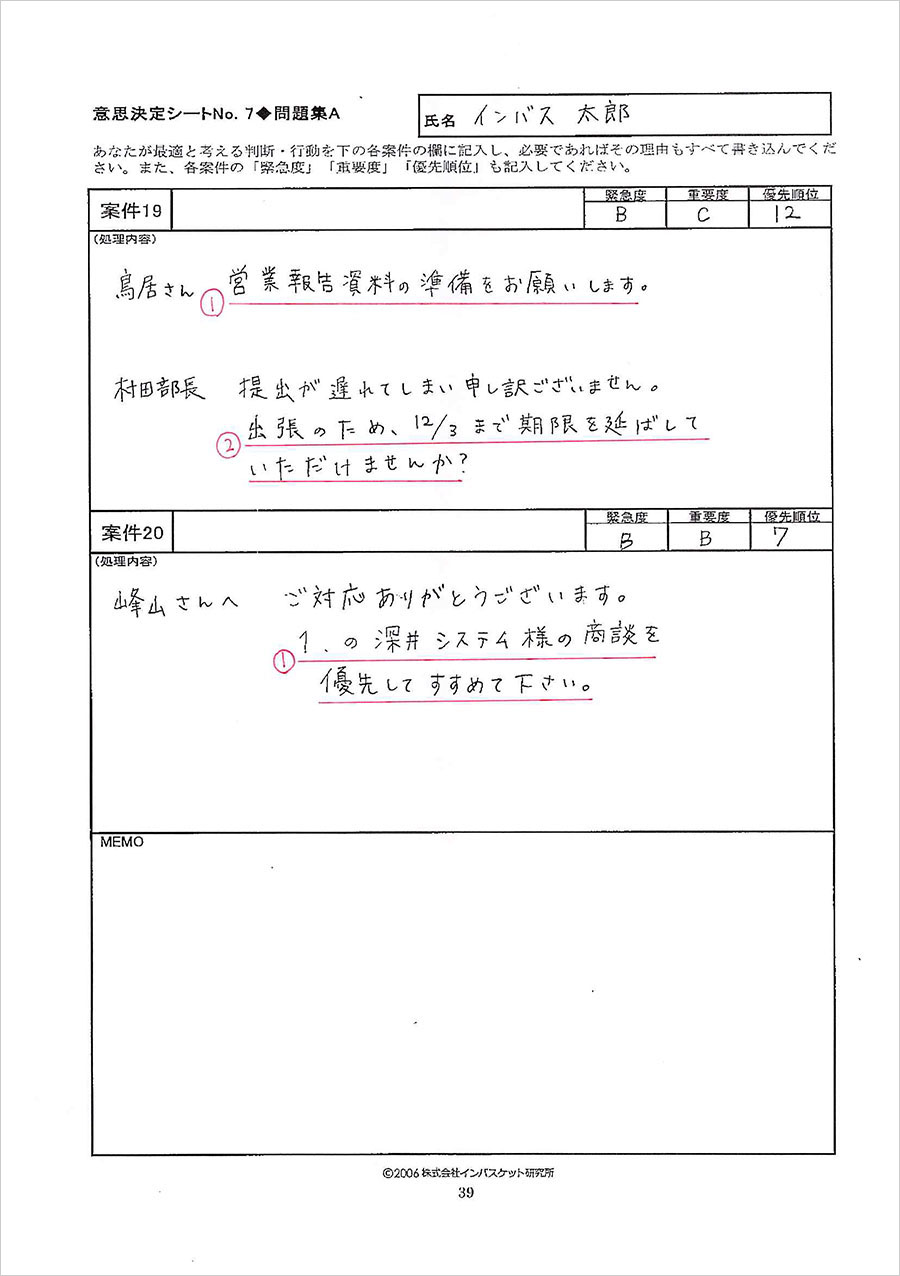 意思決定シートNo. 7◆問題集A
氏名 インバス 太郎
あなたが最適と考える判断・行動を下の各案件の欄に記入し、必要であればその理由もすべて書き込んでくだ
さい。また、各案件の「緊急度」「重要度」「優先順位」も記入してください。
案件19 緊急度 重要度 優先順位
B C 12
(処理内容)
鳥居さん ① 営業報告資料の準備をお願いします。
村田部長 提出が遅れてしまい申し訳ございません。
② 出張のため、12/3まで期限を延ばして
いただけませんか?
案件20 緊急度 重要度 優先順位
B B 7
(処理内容)
峰山さんへ ご対応ありがとうございます。
① 1.の深井システム様の商談を
優先してすすめて下さい。
MEMO
©2006 株式会社インバスケット研究所
39